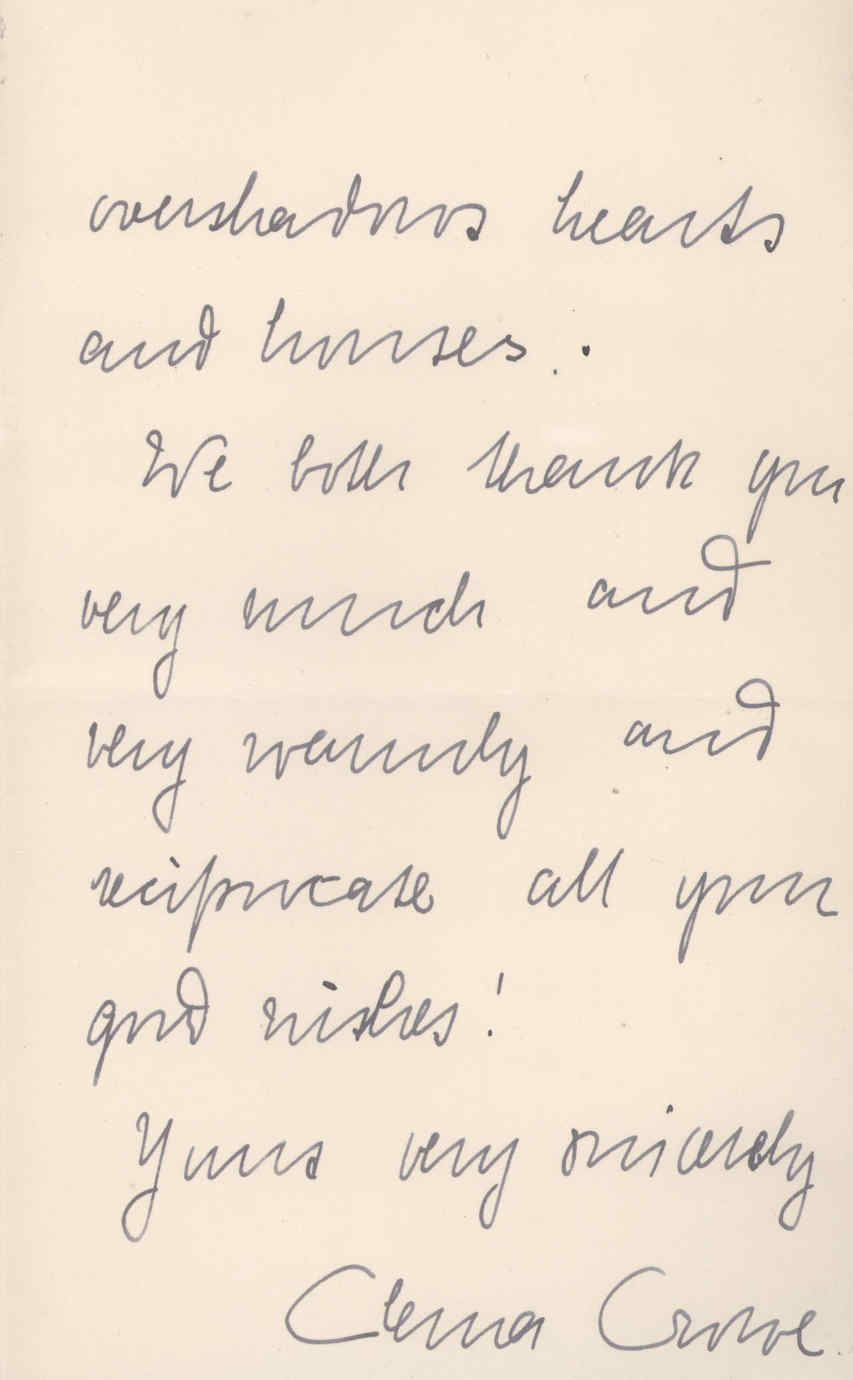 overshadows hearts
and houses.
We both thank you
very much and
very warmly and
reciprocate all your
good wishes!
Yours very sincerely
Clema Crowe.